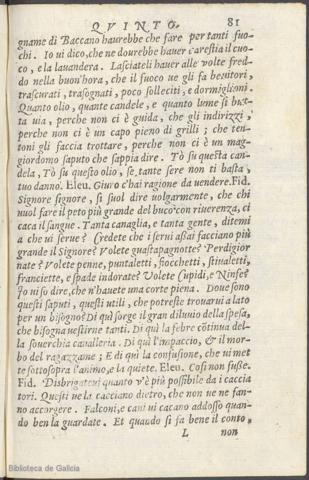 QVINTO. 81
gname di Baccano haurebbe che fare per tanti fuo-
chi. Io ui dico, che ne dourebbe hauer carestia il cuo-
co, e la lauandera. Lasciateli hauer alle volte fred-
do nella buon'hora, che il fuoco ue gli fa beuitori,
trascurati, trasognati, poco solleciti, e dormiglioni.
Quanto olio, quante candele, e quanto lume si but-
ta uia, perche non ci è guida, che gli indirizzi,
perche non ci è un capo pieno di grilli; che ten-
toni gli faccia trottare, perche non ci è un mag-
giordomo saputo che sappia dire. Tò su questa can-
dela, Tò su questo olio, se tante sere non ti basta,
tuo danno. Eleu. Giuro c'hai ragione da uendere. Fid.
Signore signore, si suol dire uolgarmente, che chi
uuol fare il peto più grande del buco con riuerenza, ci
caca il sangue. Tanta canaglia, e tanta gente, ditemi
a che ui serue? Credete che i serui assai facciano più
grande il Signore? Volete guastapagnotte? Perdigior
nate? Volete penne, puntaletti, fiocchetti, stiualetti,
franciette, e spade indorate? Volete Cupidi, e Ninfe?
Io ui so dire, che n'hauete una corte piena. Doue sono
questi saputi, questi utili, che potreste trouarui a lato
per un bisogno? Di quì sorge il gran diluuio della spesa,
che bisogna uestirne tanti. Di quì la febre cõtinua del-
la souerchia caualleria. Di quì l'impaccio, & il mor-
bo del ragazzame; E di quì la confusione, che ui met
te sottosopra l'animo, e la quiete. Eleu. Così non fusse.
Fid. Disbrigateui quanto v'è più possibile da i caccia
tori. Questi ue la cacciano dietro, che non ue ne fan-
no accorgere. Falconi, e cani ui cacano addosso quan-
do ben la guardate. Et quando si fa bene il conto,
L non
Biblioteca de Galicia